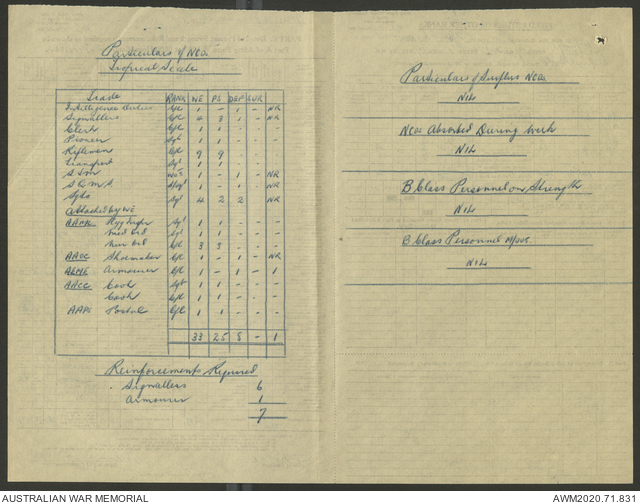 Particulars of NCOs
Tropical Scale
Trade RANK WE PS DEF SUR NR
Intelligence Duties Cpl 1 - 1 - NR
Signallers Cpl 4 3 1 - NR
Clerk Cpl 1 1 - - -
Pioneer Sgt 1 1 - - -
Riflemen Cpl 9 9 - - -
Transport Sgt 1 1 - - -
S.S.M 1 - 1 - NR
S.Q.M.S 1 - 1 - NR
Sgts Sgt 4 2 2 - NR
Attached by WE
AAMC Sgt 1 1 - - -
Sgt 1 1 - - -
Cpl 3 3 - - -
AAOC Shoemaker Cpl 1 1 - - NR
AEME Armourer Cpl 1 - 1 - 1
AACC Cook Sgt 1 1 - - -
Cook Cpl 1 1 - - -
AAPS Postal Cpl 1 1 - - -
33 25 8 - 1
Reinforcements Required
Signallers 6
Armourer 1
7
Particulars of Surplus NCOs
NIL
NCOs Absorbed During Week
NIL
B Class Personnel on Strength
NIL
B Class Personnel
NIL
AUSTRALIAN WAR MEMORIAL
AWM2020.71.831